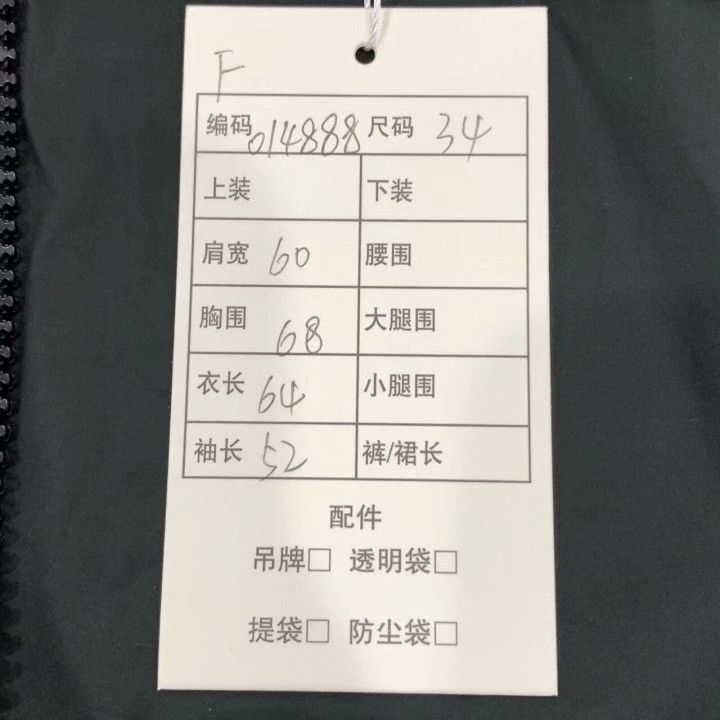 F
编码 014888 尺码 34
上装 下装
肩宽 60 腰围
胸围 68 大腿围
衣长 64 小腿围
袖长 52 裤/裙长
配件
吊牌□ 透明袋□
提袋□ 防尘袋□